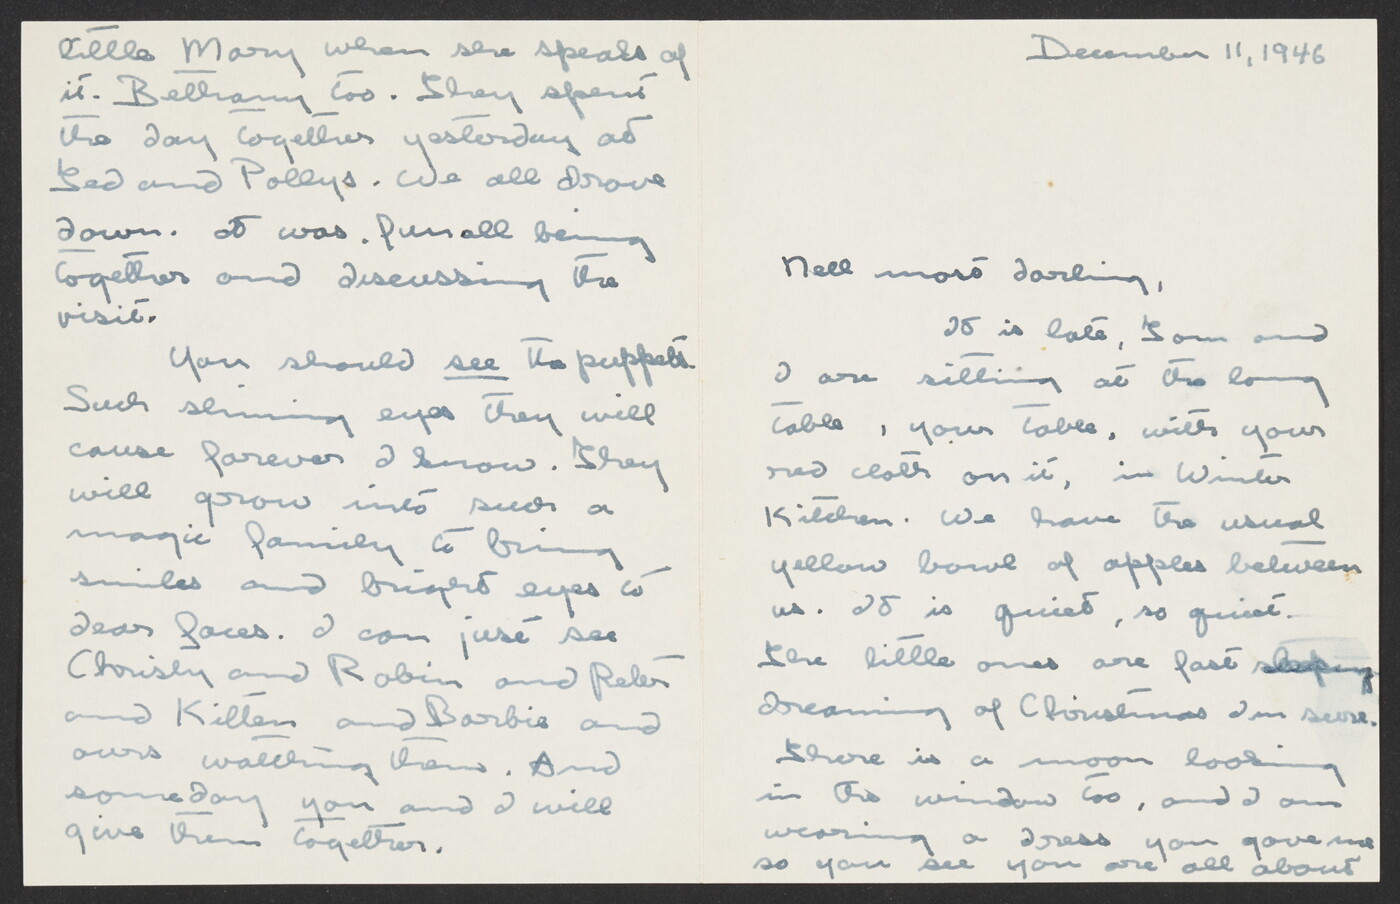 December 11, 1946
Nell most darling,
It is late, Tom and
I are sitting at the long
table, your table, with your
red cloth on it, in Winter
Kitchen. We have the usual
yellow bowl of apples between
us. It is quiet, so quiet.
The little ones are fast sleeping
dreaming of Christmas I'm sure.
There is a moon looking
in the window too, and I am
wearing a dress you gave me
so you see you are all about
little Mary when she speaks of
it. Bethany too. They spent
the day together yesterday at
Ted and Pollys. We all drove
down. It was fun all being
together and discussing the
visit.
You should see the puppets.
Such shining eyes they will
cause forever I know. They
will grow into such a
magic family to bring
smiles and bright eyes to
dear faces. I can just see
Christy and Robin and Peter
and Kitten and Barbie and
ours watching them. And
someday you and I will
give them together.